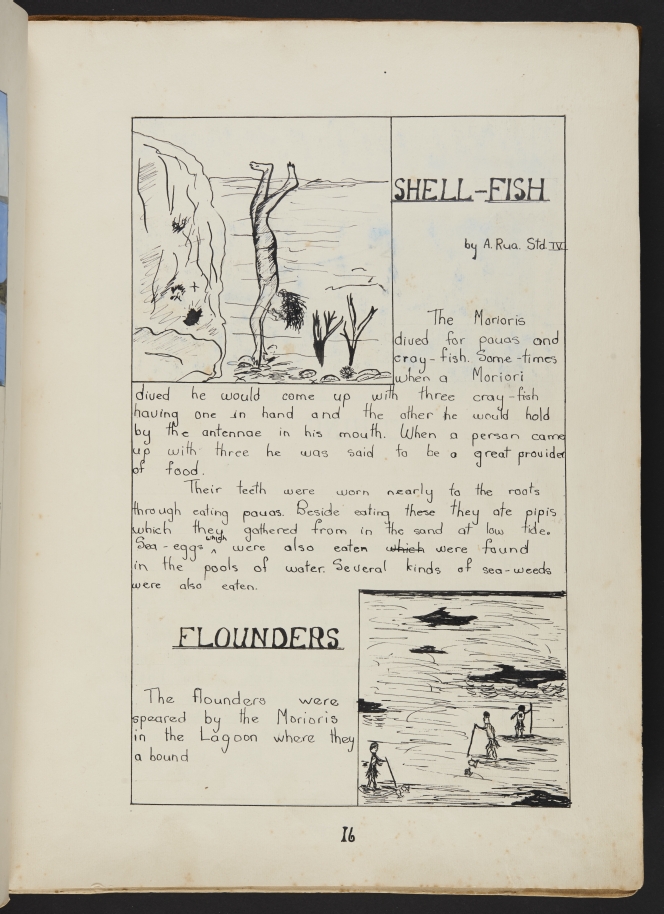 SHELL-FISH
by A. Rua. Std. IV
The Morioris
dived for pauas and
cray-fish. Some-times
when a Moriori
dived he would come up with three cray-fish
having one in hand and the other he would hold
by the antennae in his mouth. When a person came
up with three he was said to be a great provider
of food.
Their teeth were worn nearly to the roots
through eating pauas. Beside eating these they ate pipis
which they gathered from in the sand at low tide.
Sea-eggs ^which were also eaten which were found
in the pools of water. Several kinds of sea-weeds
were also eaten.
FLOUNDERS
The flounders were
speared by the Morioris
in the Lagoon where they
a bound
16